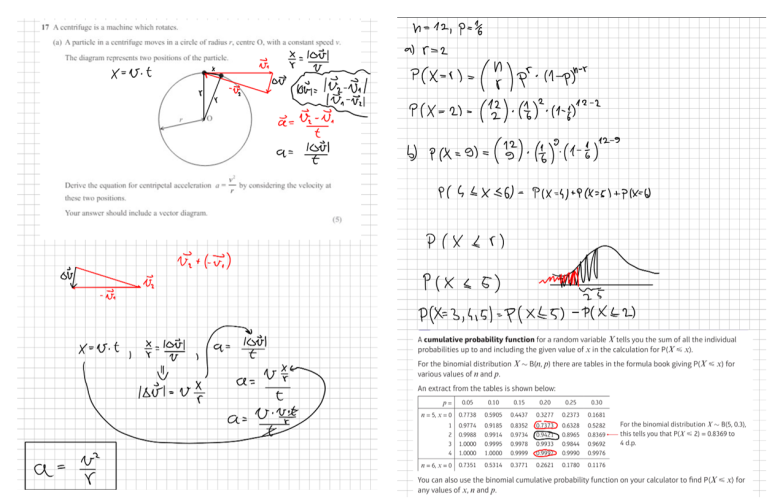 17 A centrifuge is a machine which rotates.
(a) A particle in a centrifuge moves in a circle of radius r, centre O, with a constant speed v.
The diagram represents two positions of the particle.
x = v · t
x
r
r
r
O
v⃗₁
-v⃗₂
Δv⃗
x/r = |Δv⃗|/v
|Δv⃗| = |v⃗₂ - v⃗₁|
|v⃗₁ - v⃗₂|
a⃗ = (v⃗₂ - v⃗₁)/t
a = |Δv⃗|/t
Derive the equation for centripetal acceleration a = v²/r by considering the velocity at
these two positions.
Your answer should include a vector diagram.
(5)
v⃗₂ + (-v⃗₁)
Δv⃗
-v⃗₁
v⃗₂
x = v · t , x/r = |Δv⃗|/v , a = |Δv⃗|/t
⇓
|Δv⃗| = v x/r
a = v x/r / t
a = v · v·t/r / t
a = v²/r
n = 12, p = 1/6
a) r = 2
P(X = r) = (n r) pʳ · (1-p)ⁿ⁻ʳ
P(X = 2) = (12 2) · (1/6)² · (1-1/6)¹²⁻²
b) P(X = 9) = (12 9) · (1/6)⁹ · (1-1/6)¹²⁻⁹
P( 4 ≤ X ≤ 6) = P(X=4) + P(X=5) + P(X=6)
P(X ≤ r)
P(X ≤ 5)
2 5
P(X = 3,4,5) = P(X ≤ 5) - P(X ≤ 2)
A cumulative probability function for a random variable X tells you the sum of all the individual
probabilities up to and including the given value of x in the calculation for P(X ⩽ x).
For the binomial distribution X ~ B(n, p) there are tables in the formula book giving P(X ⩽ x) for
various values of n and p.
An extract from the tables is shown below:
p = 0.05 0.10 0.15 0.20 0.25 0.30
n = 5, x = 0 0.7738 0.5905 0.4437 0.3277 0.2373 0.1681
1 0.9774 0.9185 0.8352 0.7373 0.6328 0.5282
2 0.9988 0.9914 0.9734 0.9421 0.8965 0.8369
3 1.0000 0.9995 0.9978 0.9933 0.9844 0.9692
4 1.0000 1.0000 0.9999 0.9997 0.9990 0.9976
n = 6, x = 0 0.7351 0.5314 0.3771 0.2621 0.1780 0.1176
For the binomial distribution X ~ B(5, 0.3),
this tells you that P(X ⩽ 2) = 0.8369 to
4 d.p.
You can also use the binomial cumulative probability function on your calculator to find P(X ⩽ x) for
any values of x, n and p.